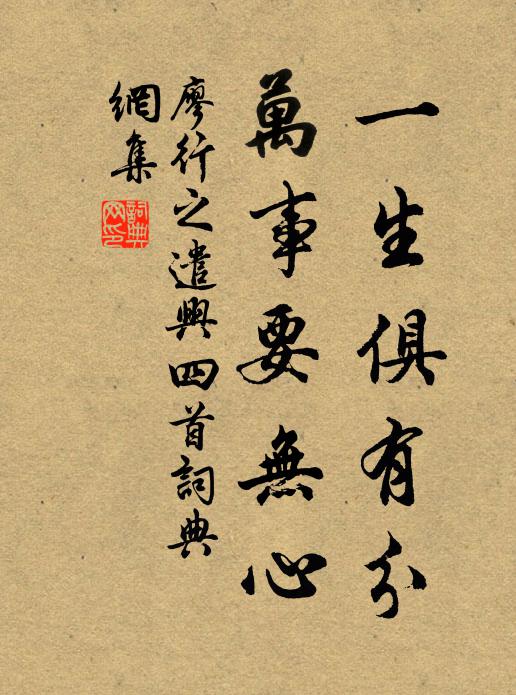 一生俱有分
萬事要無心
廖行之遣興四首詞典
網集
詞典
网印